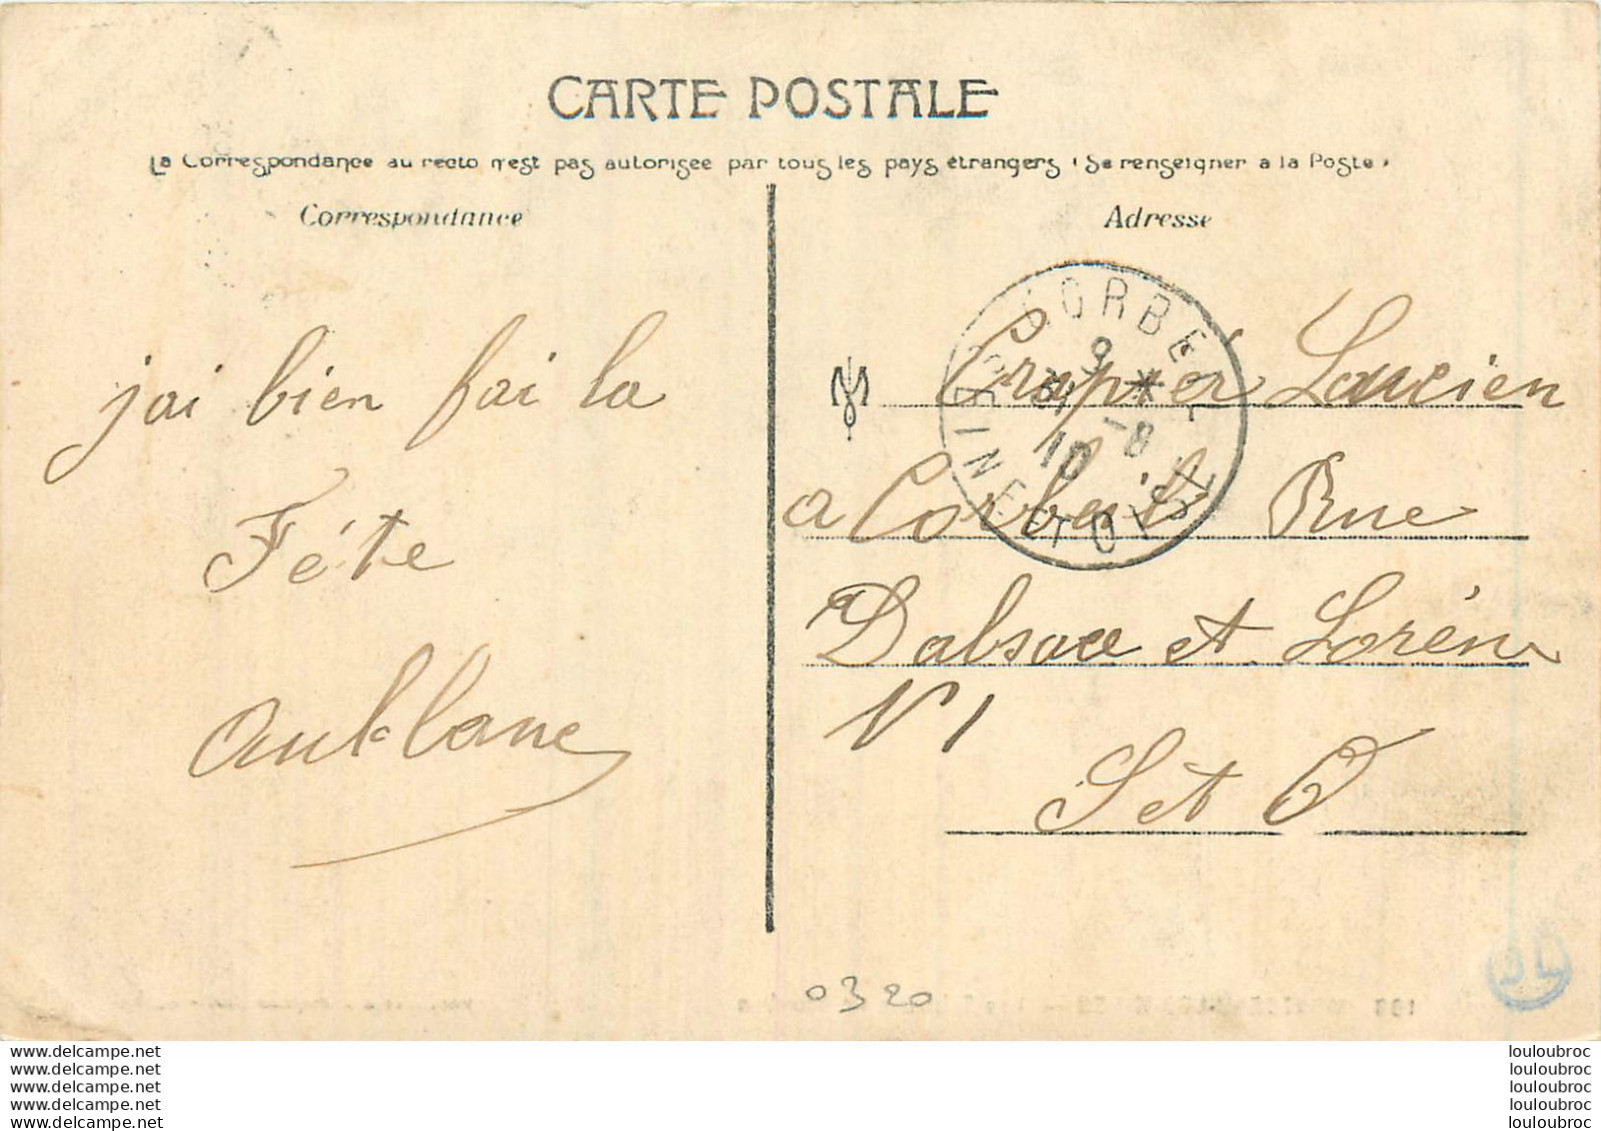 CARTE POSTALE
La Correspondance au recto n'est pas autorisée par tous les pays étrangers (Se renseigner à la Poste)
Correspondance
jai bien fai la
Féte
aublanc
Adresse
CORBEIL
9
31 -8
10
SEINE-ET-OISE
Crapier Laucien
a Corbeil Rue
Dalsace et Lorén
N 1
S et O
0320
JL
www.delcampe.net
www.delcampe.net
www.delcampe.net
www.delcampe.net
www.delcampe.net
louloubroc
louloubroc
louloubroc
louloubroc
louloubroc